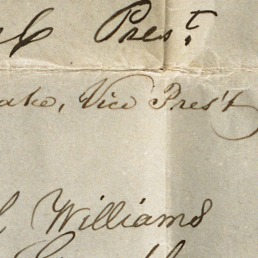 Pres.t
ake, Vice Pres't
Williams